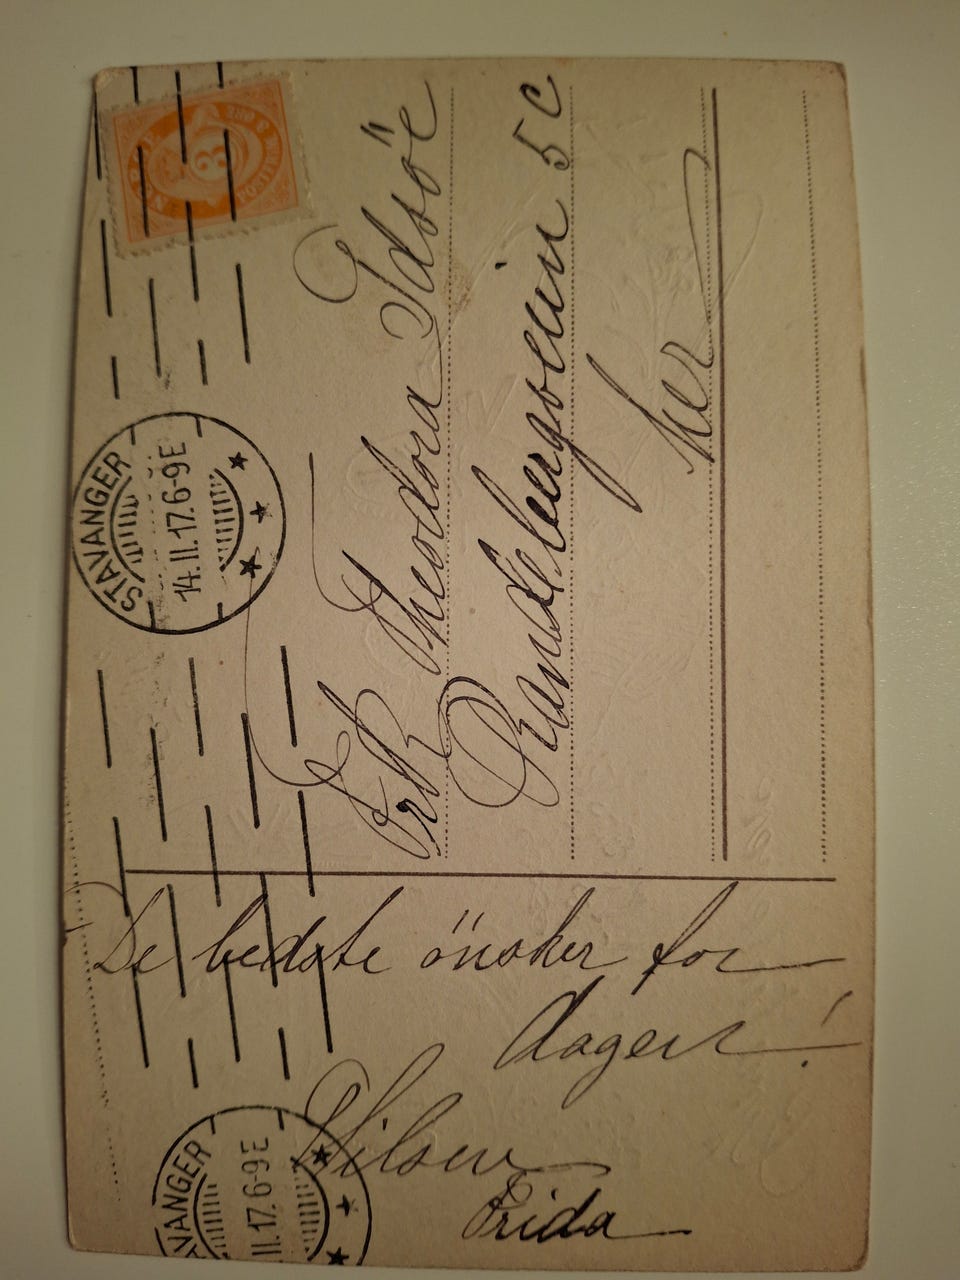 De bedste önsker for
dagen!
Hilsen
Frida
Frk Theodora Idsöe
Randebergveien 5 c
her
STAVANGER
14.II.17.6-9E
VANGER
II.17.6-9E
3